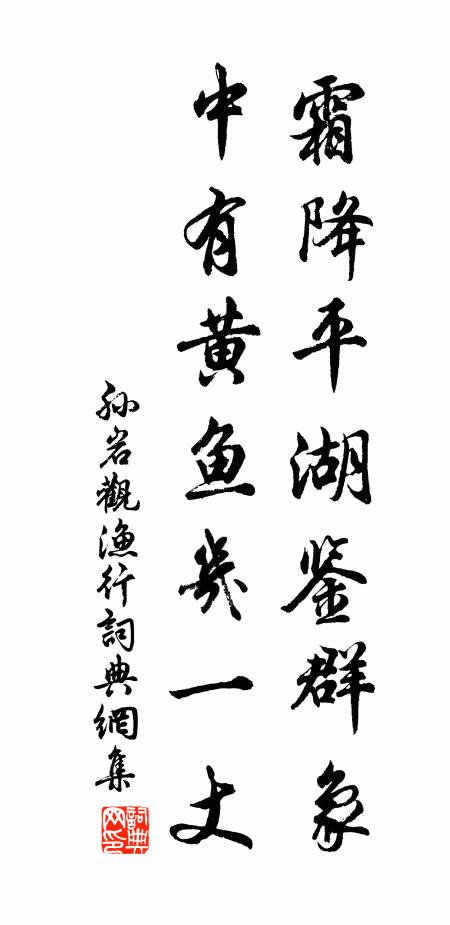 霜降平湖鉴群象
中有黄鱼几一丈
孙岩觀渔行詞典網集
詞典网印